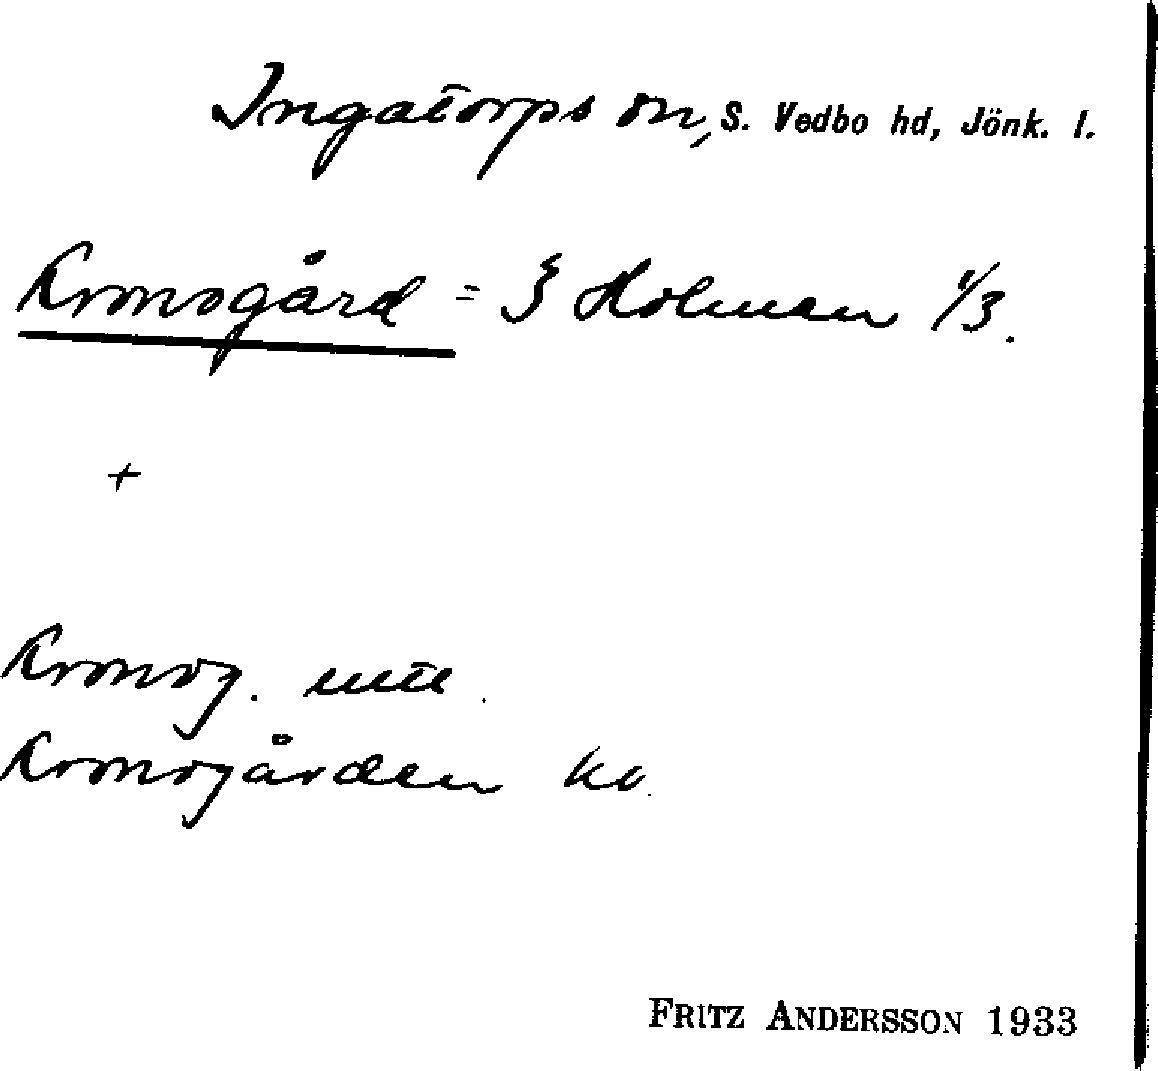 Ingatorps sn, S. Vedbo hd, Jönk. l.
Kronogård = } Holmen 1/3.
+
Kronog.
Kronogården ko.
FRITZ ANDERSSON 1933